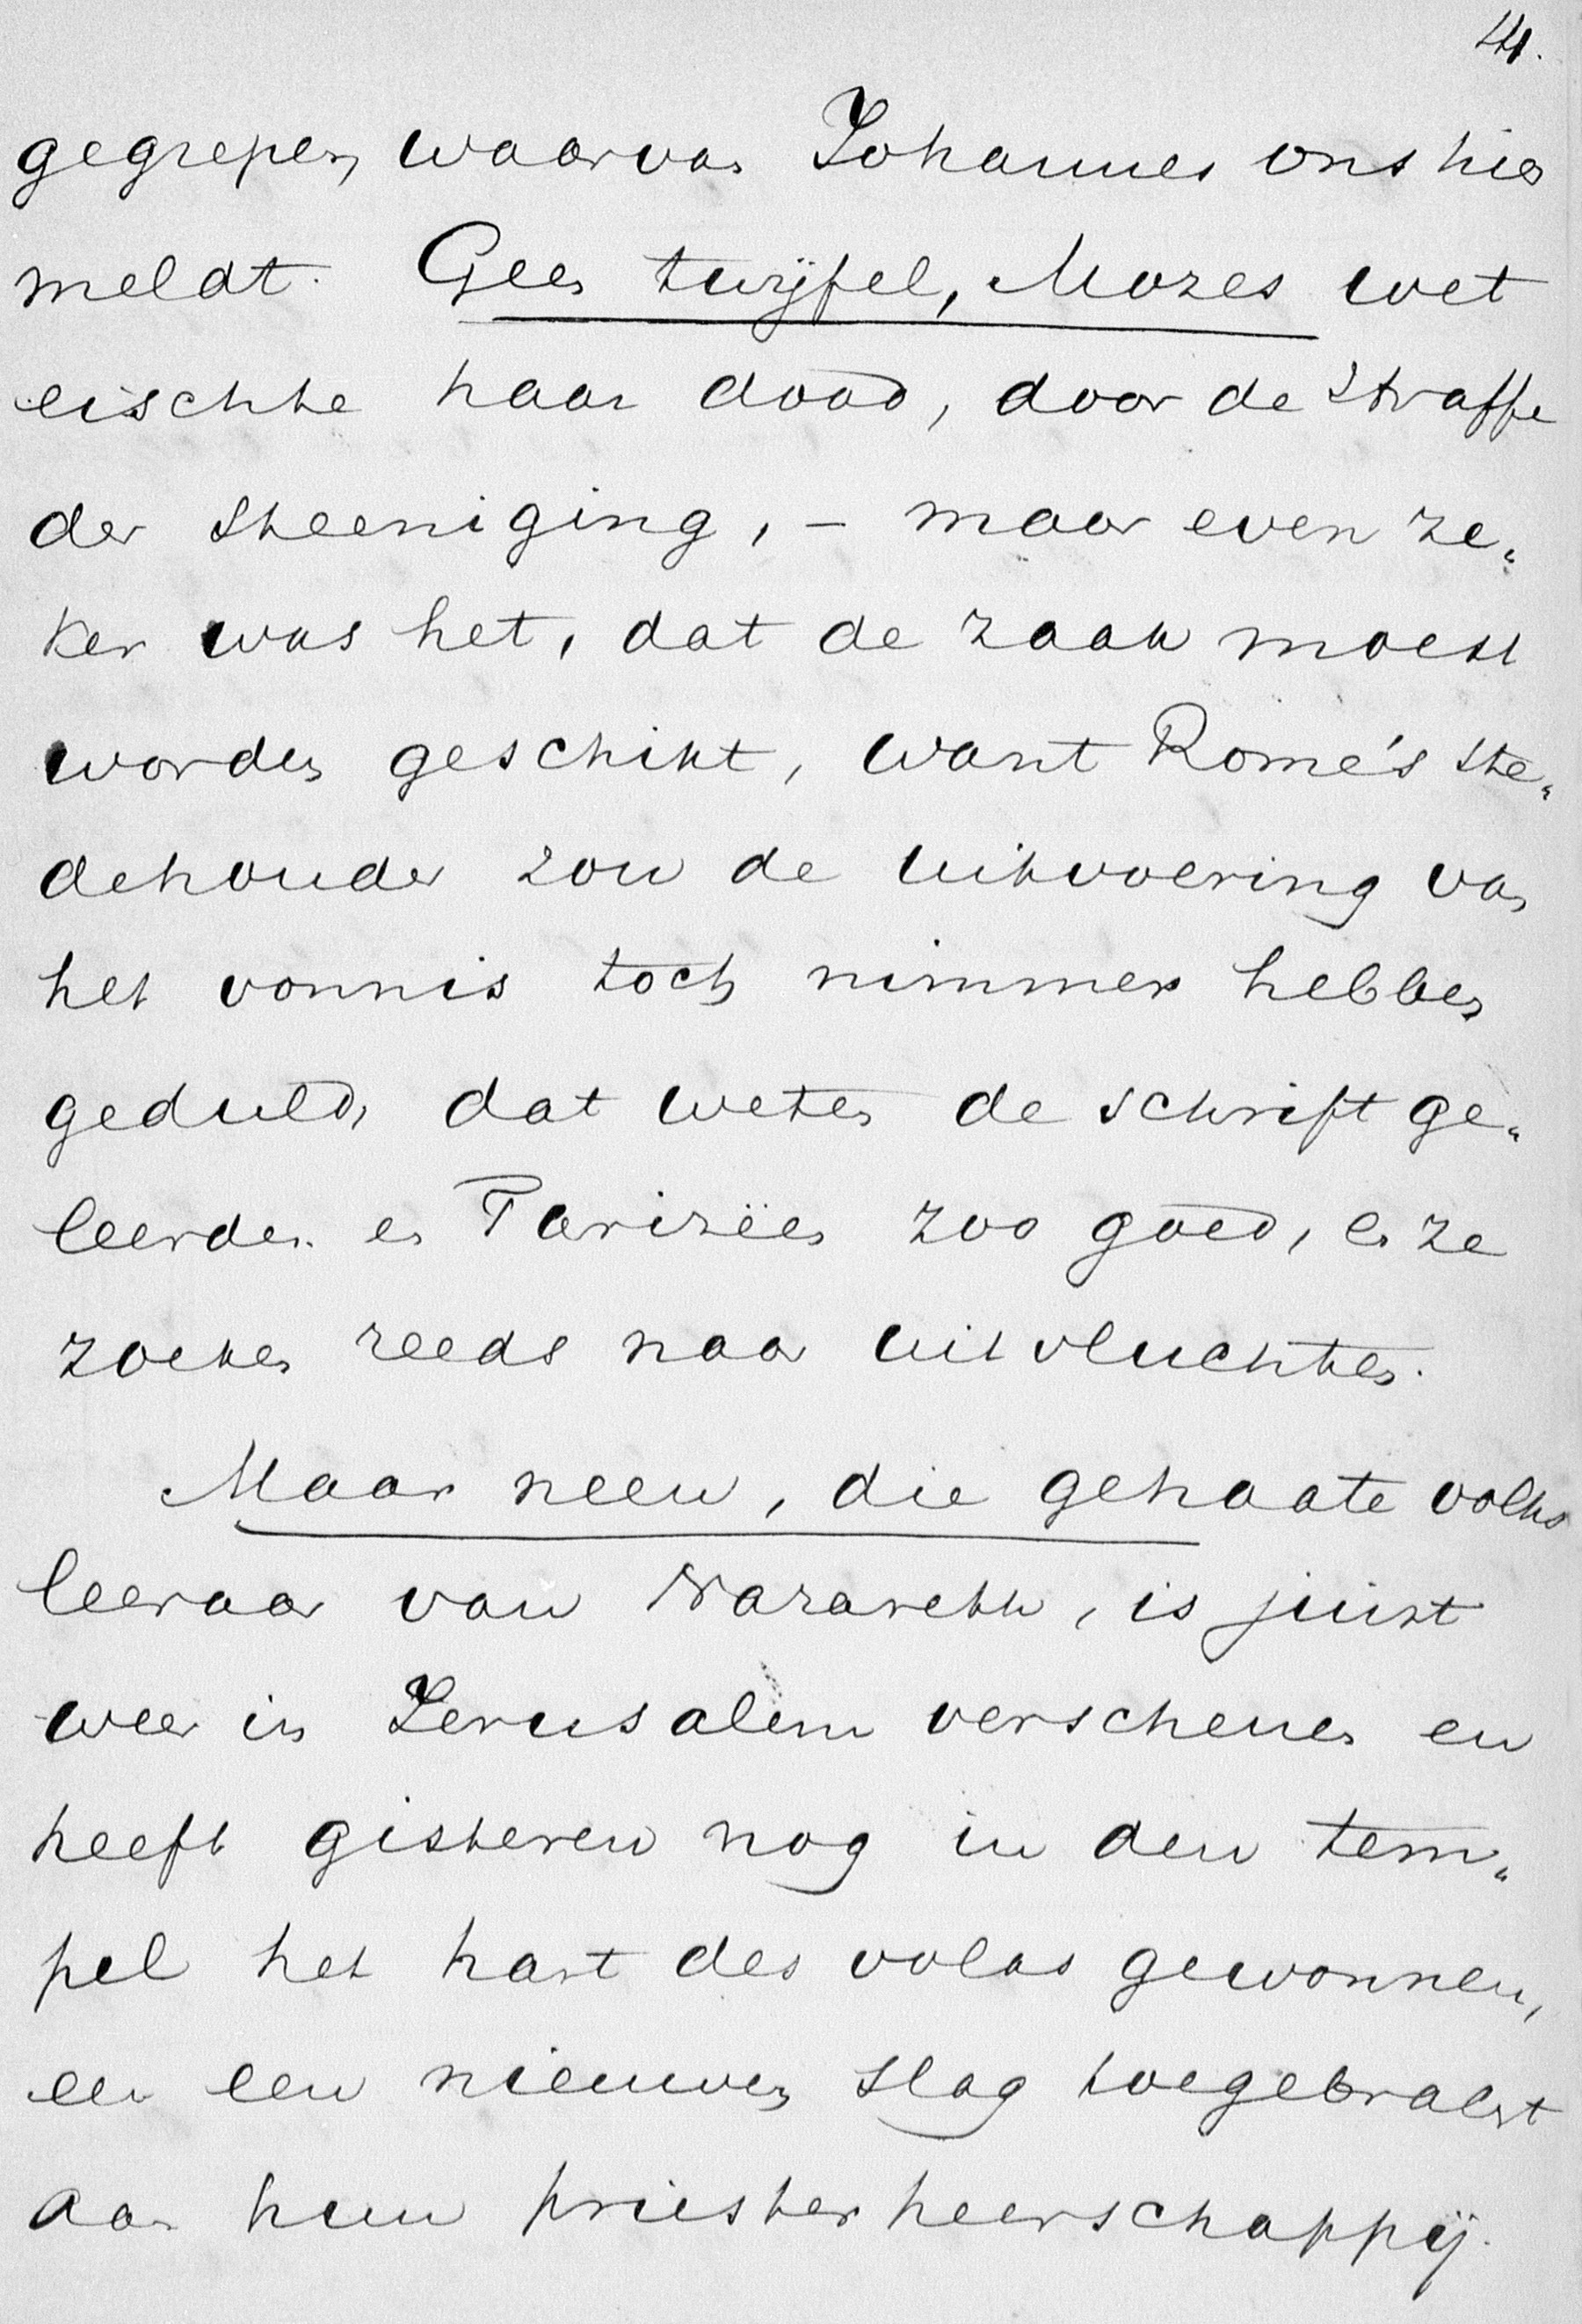 44.
gegrepen, waarvan Johannes ons hier
meldt. Geen twijfel, Mozes wet
eischte haar dood, door de straffe
der steeniging, – maar even ze„
ker was het, dat de zaak moest
worden geschikt, want Rome's ste„
dehouder zou de uitvoering van
het vonnis toch nimmer hebben
geduld, dat weten de schriftge„
leerden en Farizëen zoo goed, en ze
zoeken reeds naar uitvluchten.
Maar neen, die gehaate volks
leeraar van Nazareth, is juist
weer in Jerusalem verschenen en
heeft gisteren nog in den tem„
pel het hart des volks gewonnen,
en een nieuwen slag toegebracht
aan hun priesterheerschappij.